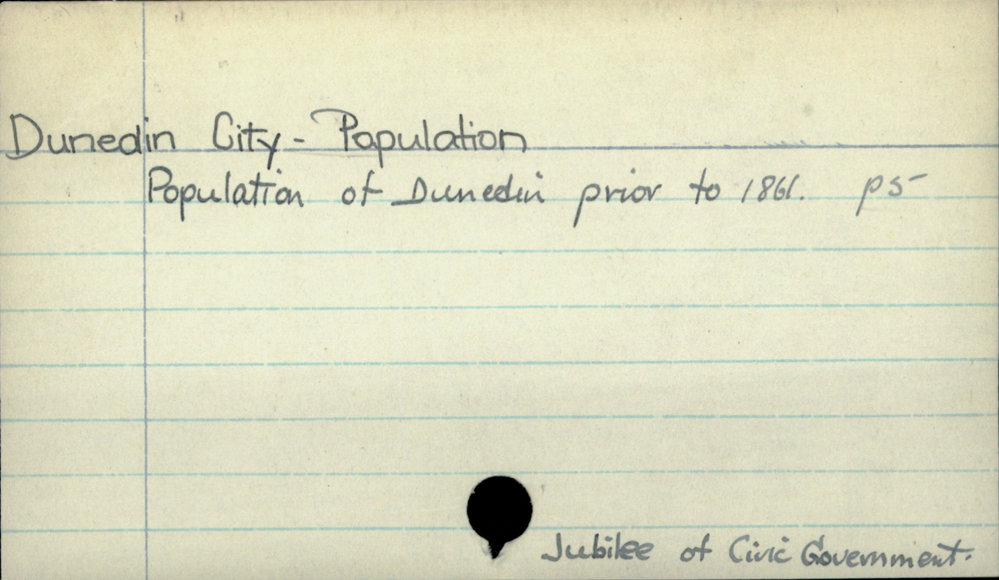 Dunedin City - Population
Population of Dunedin prior to 1861. p5
Jubilee of Civic Government.